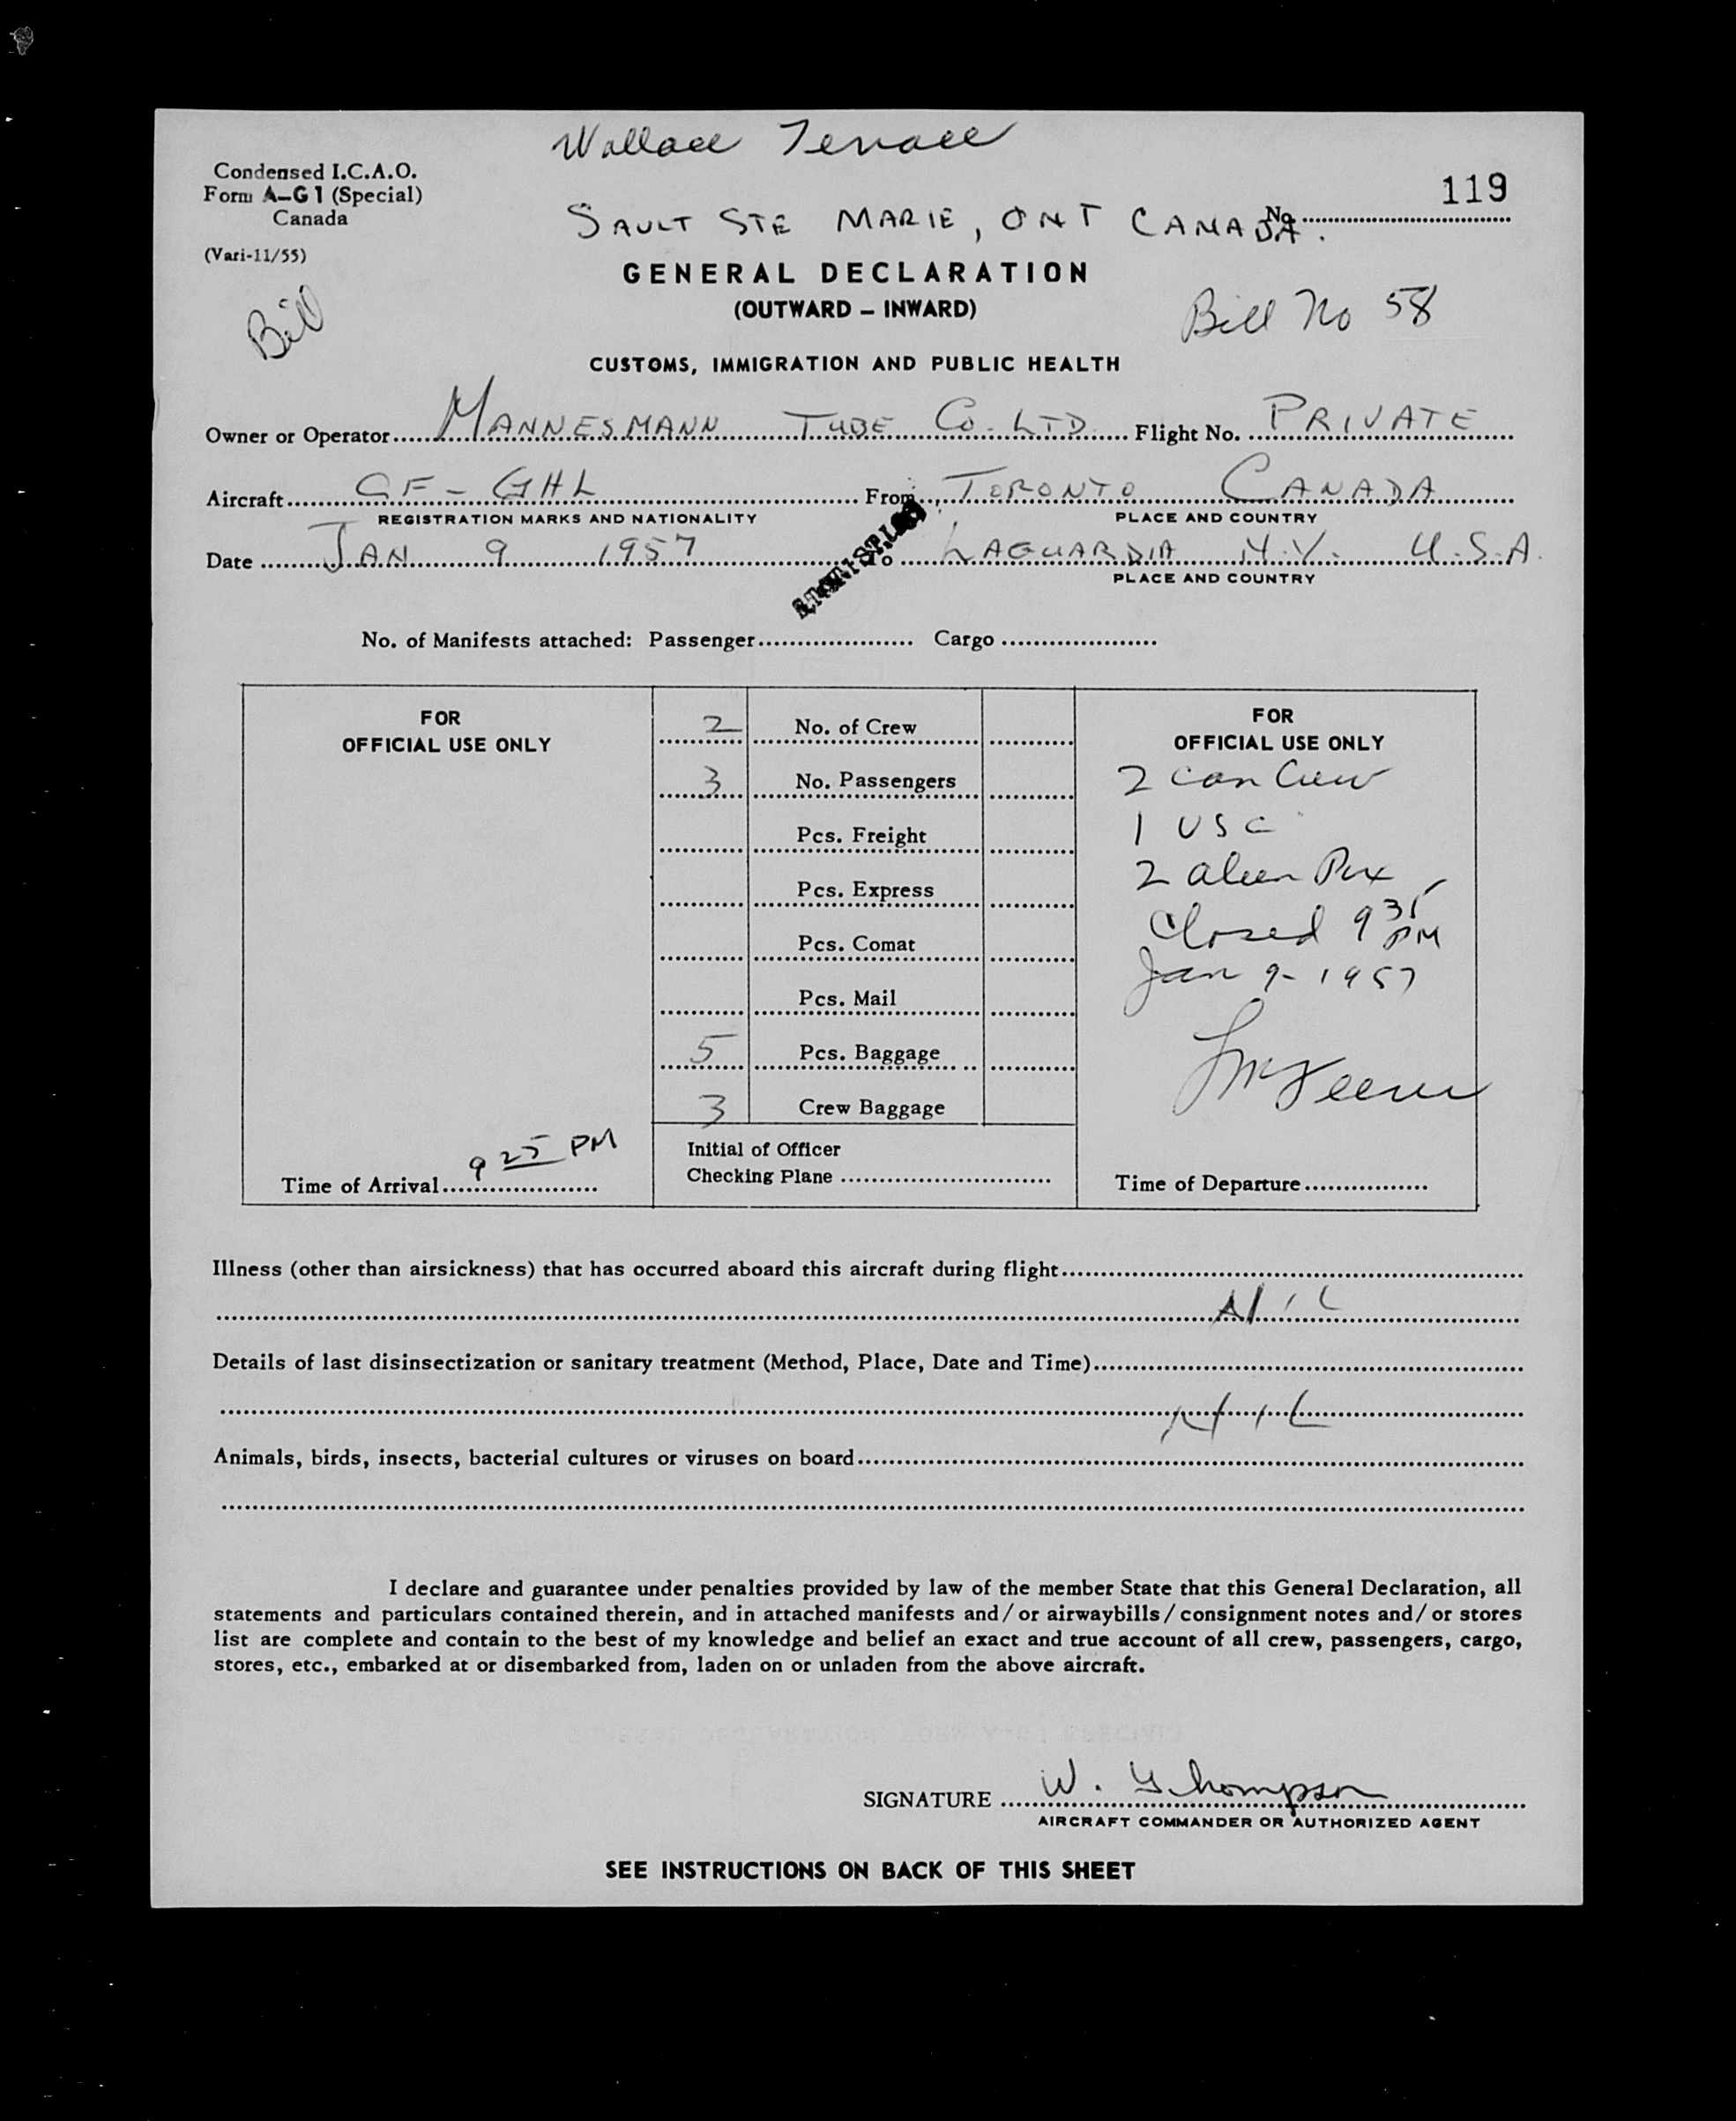 Wallace Terrace
Condensed I.C.A.O.
Form A–G1 (Special)
Canada
(Vari-11/55)
119
SAULT STE MARIE, ONT CANADA.
No. ..........
GENERAL DECLARATION
(OUTWARD – INWARD)
Bill
Bill No 58
CUSTOMS, IMMIGRATION AND PUBLIC HEALTH
Owner or Operator MANNESMANN TUBE CO. LTD. Flight No. PRIVATE
Aircraft CF-GHL From TORONTO CANADA
REGISTRATION MARKS AND NATIONALITY PLACE AND COUNTRY
Date JAN 9 1957 To LAGUARDIA N.Y. U.S.A.
PLACE AND COUNTRY
No. of Manifests attached: Passenger.......... Cargo ..........
FOR
OFFICIAL USE ONLY
2 No. of Crew
3 No. Passengers
Pcs. Freight
Pcs. Express
Pcs. Comat
Pcs. Mail
5 Pcs. Baggage
3 Crew Baggage
Time of Arrival 9 25 PM
Initial of Officer
Checking Plane ..........
FOR
OFFICIAL USE ONLY
2 can Crew
1 USC
2 alien Pax
Closed 9 35 PM
Jan 9-1957
Time of Departure..........
Illness (other than airsickness) that has occurred aboard this aircraft during flight..........
NIL
Details of last disinsectization or sanitary treatment (Method, Place, Date and Time)..........
NIL
Animals, birds, insects, bacterial cultures or viruses on board..........
I declare and guarantee under penalties provided by law of the member State that this General Declaration, all
statements and particulars contained therein, and in attached manifests and/or airwaybills/consignment notes and/or stores
list are complete and contain to the best of my knowledge and belief an exact and true account of all crew, passengers, cargo,
stores, etc., embarked at or disembarked from, laden on or unladen from the above aircraft.
SIGNATURE W. G. Thompson
AIRCRAFT COMMANDER OR AUTHORIZED AGENT
SEE INSTRUCTIONS ON BACK OF THIS SHEET